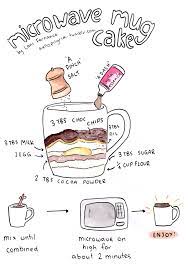 microwave mug
cake
by Lani
"A
PINCH"
SALT
3 TBS CHOC
CHIPS
3 TBS MILK
1 EGG
3 TBS OIL
3 TBS SUGAR
1/4 CUP FLOUR
2 TBS
COCOA POWDER
mix until
combined
microwave on
high for
about 2 minutes
ENJOY!